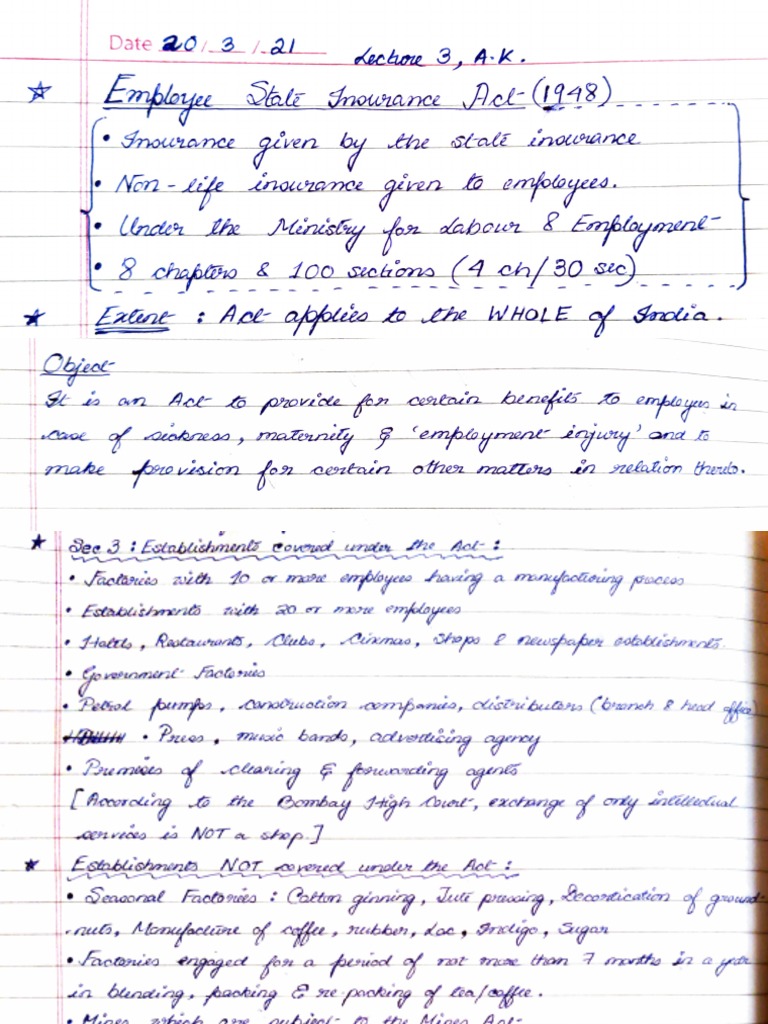 Date 20 / 3 / 21
Lecture 3, A.K.
Employee State Insurance Act (1948)
• Insurance given by the state insurance
• Non-life insurance given to employees.
• Under the Ministry for Labour & Employment
• 8 chapters & 100 sections (4 ch/30 sec)
Extent : Act applies to the WHOLE of India.
Object
It is an Act to provide for certain benefits to employees in
case of sickness, maternity & 'employment injury' and to
make provision for certain other matters in relation thereto.
Sec 3 : Establishments covered under the Act :
• Factories with 10 or more employees having a manufacturing process
• Establishments with 20 or more employees
• Hotels, Restaurants, Clubs, Cinemas, Shops & newspaper establishments.
• Government Factories
• Petrol pumps, construction companies, distributors (branch & head office)
• Press, music bands, advertising agency
• Premises of clearing & forwarding agents
[According to the Bombay High Court, exchange of only intellectual
services is NOT a shop.]
Establishments NOT covered under the Act :
• Seasonal Factories : Cotton ginning, Jute pressing, Decortication of ground-
nuts, Manufacture of coffee, rubber, Lac, Indigo, Sugar
• Factories engaged for a period of not more than 7 months in a year
in blending, packing & re-packing of tea/coffee.
• Mines which are subject to the Mines Act